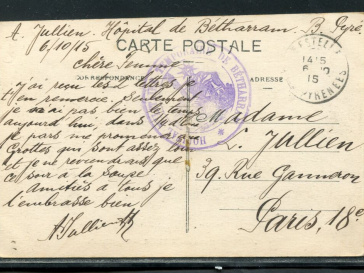 A. Jullien. Hôpital de Bétharram. B. Pyré
6/10/15
CARTE POSTALE
CORRESPONDANCE
ADRESSE
chère Femme
j'ai reçu tes lettres je
t'en remercie. Seulement
je n'ai pas bien le temps
aujourd'hui, dans
je pars me promener aux
Grottes qui sont assez loin
et je ne reviendrais que
ce soir à la soupe
Amitiés à tous je
t'embrasse bien
A Jullien
Madame
L. Jullien
39 Rue Ganneron
Paris, 18e
HOPITAL DE BETHARRAM
14 15
6 10
15
PYRENEES